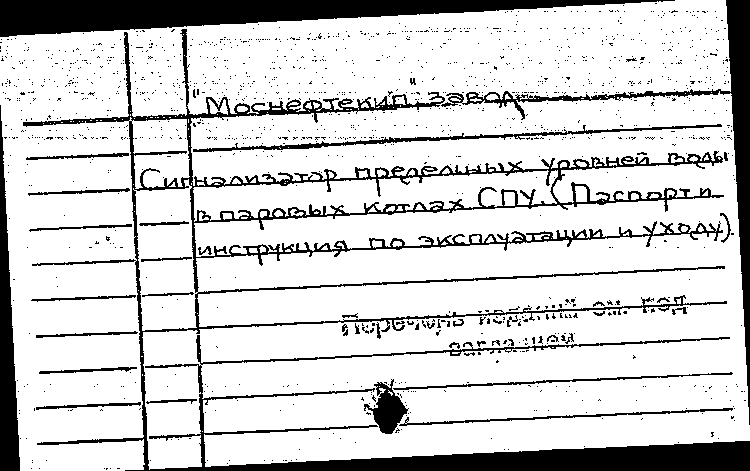 "Моснефтекип", завод
Сигнализатор предельных уровней воды
в паровых котлах СПУ. (Паспорт и
инструкция по эксплуатации и уходу).
Перечень изданий см. под
заглавием